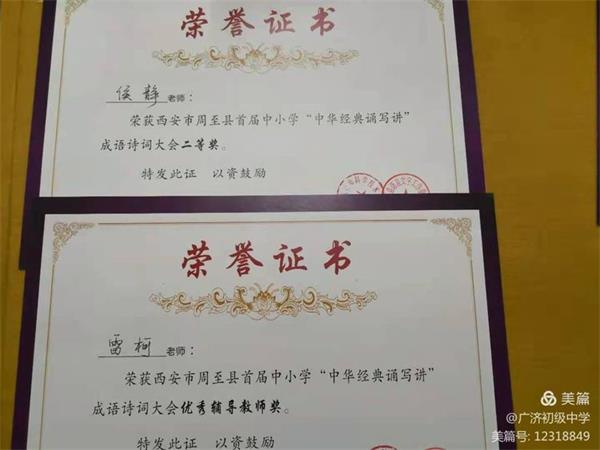 荣誉证书
侯静 老师：
荣获西安市周至县首届中小学“中华经典诵写讲”
成语诗词大会二等奖。
特发此证 以资鼓励
荣誉证书
雷柯 老师：
荣获西安市周至县首届中小学“中华经典诵写讲”
成语诗词大会优秀辅导教师奖。
特发此证 以资鼓励
美篇
@广济初级中学
美篇号: 12318849